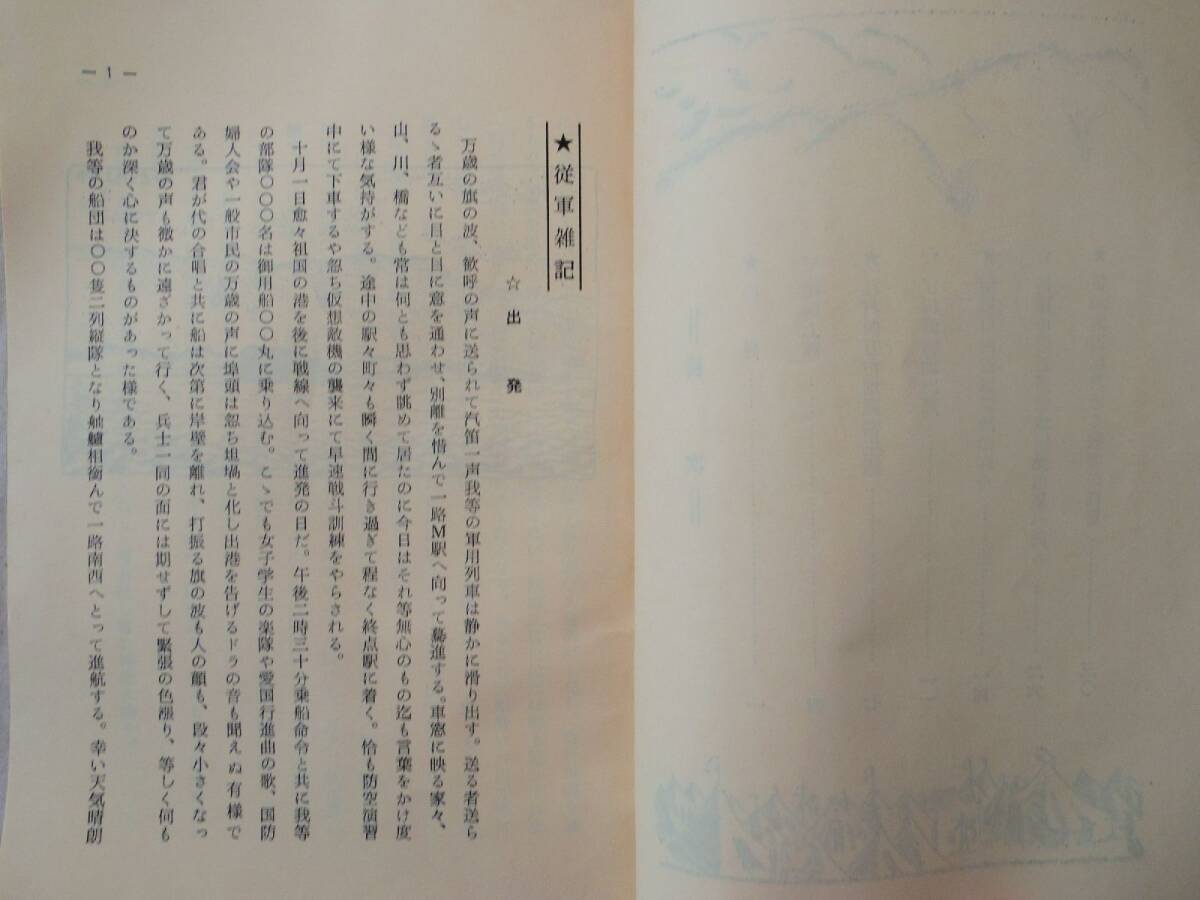 ★従軍雑記
☆出発
万歳の旗の波、歓呼の声に送られて汽笛一声我等の軍用列車は静かに滑り出す。送る者送ら
るゝ者互いに目と目に意を通わせ、別離を惜んで一路M駅へ向って驀進する。車窓に映る家々、
山、川、橋なども常は何とも思わず眺めて居たのに今日はそれ等無心のもの迄も言葉をかけ度
い様な気持がする。途中の駅々町々も瞬く間に行き過ぎて程なく終点駅に着く。恰も防空演習
中にて下車するや忽ち仮想敵機の襲来にて早速戦斗訓練をやらされる。
十月一日愈々祖国の港を後に戦線へ向って進発の日だ。午後二時三十分乗船命令と共に我等
の部隊〇〇〇名は御用船〇〇丸に乗り込む。こゝでも女子学生の楽隊や愛国行進曲の歌、国防
婦人会や一般市民の万歳の声に埠頭は忽ち坩堝と化し出港を告げるドラの音も聞えぬ有様で
ある。君が代の合唱と共に船は次第に岸壁を離れ、打振る旗の波も人の顔も、段々小さくなっ
て万歳の声も微かに遠ざかって行く、兵士一同の面には期せずして緊張の色漲り、等しく何も
のか深く心に決するものがあった様である。
我等の船団は〇〇隻二列縦隊となり舳艫相銜んで一路南西へとって進航する。幸い天気晴朗
— 1 —